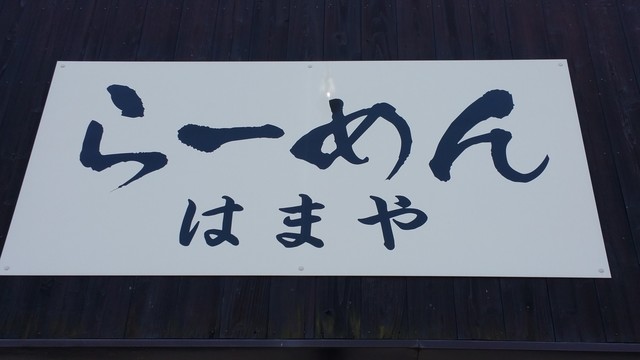 らーめん
はまや